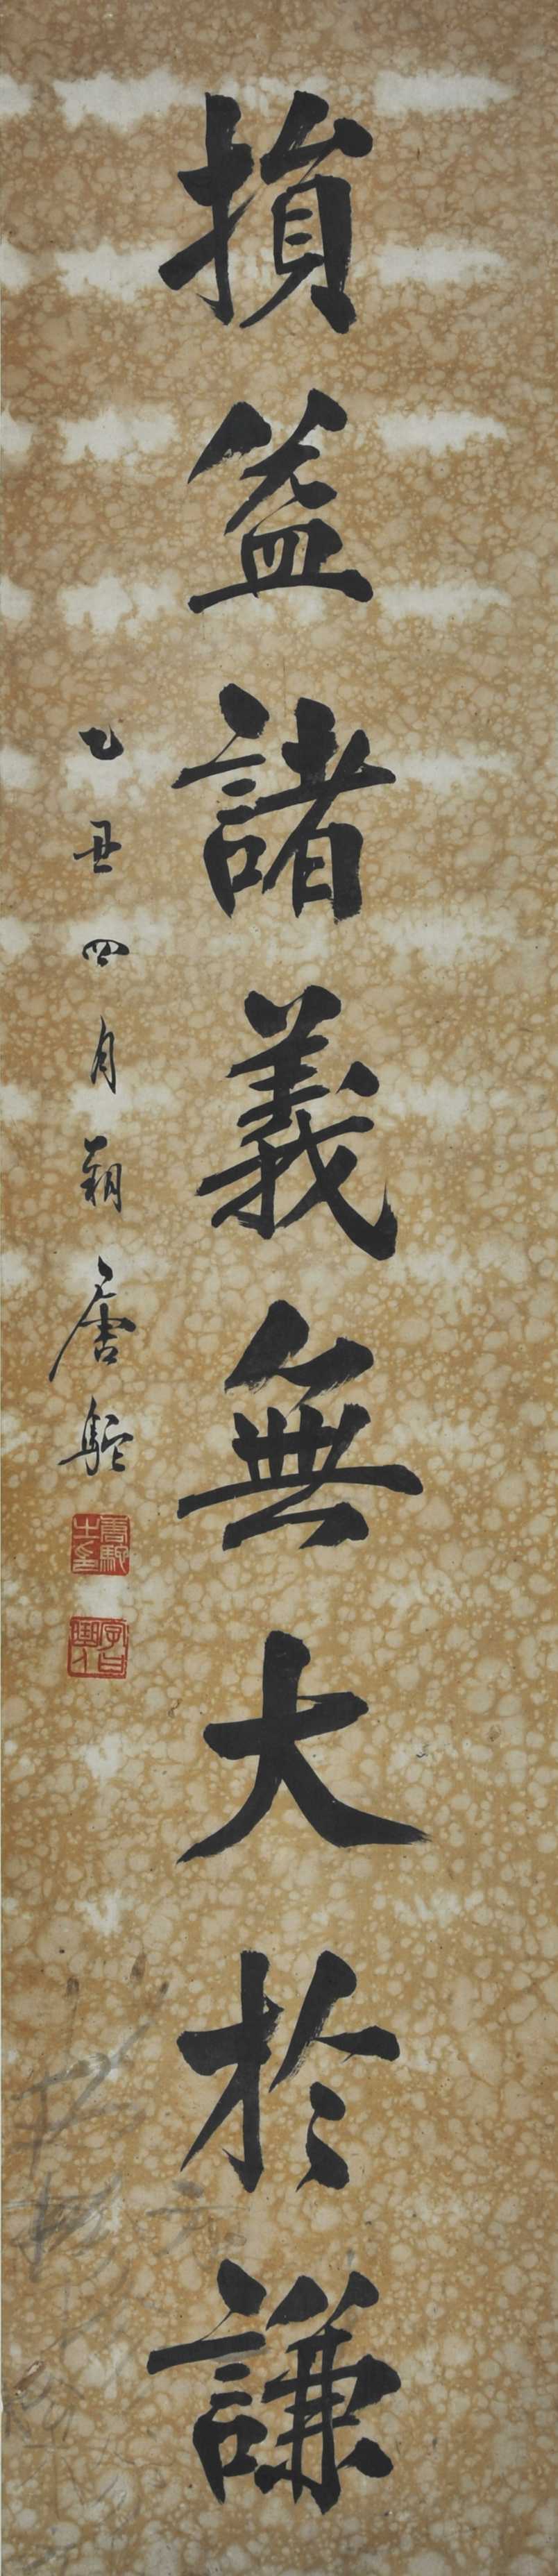 損益諸義無大於謙
乙丑四月朔唐駝